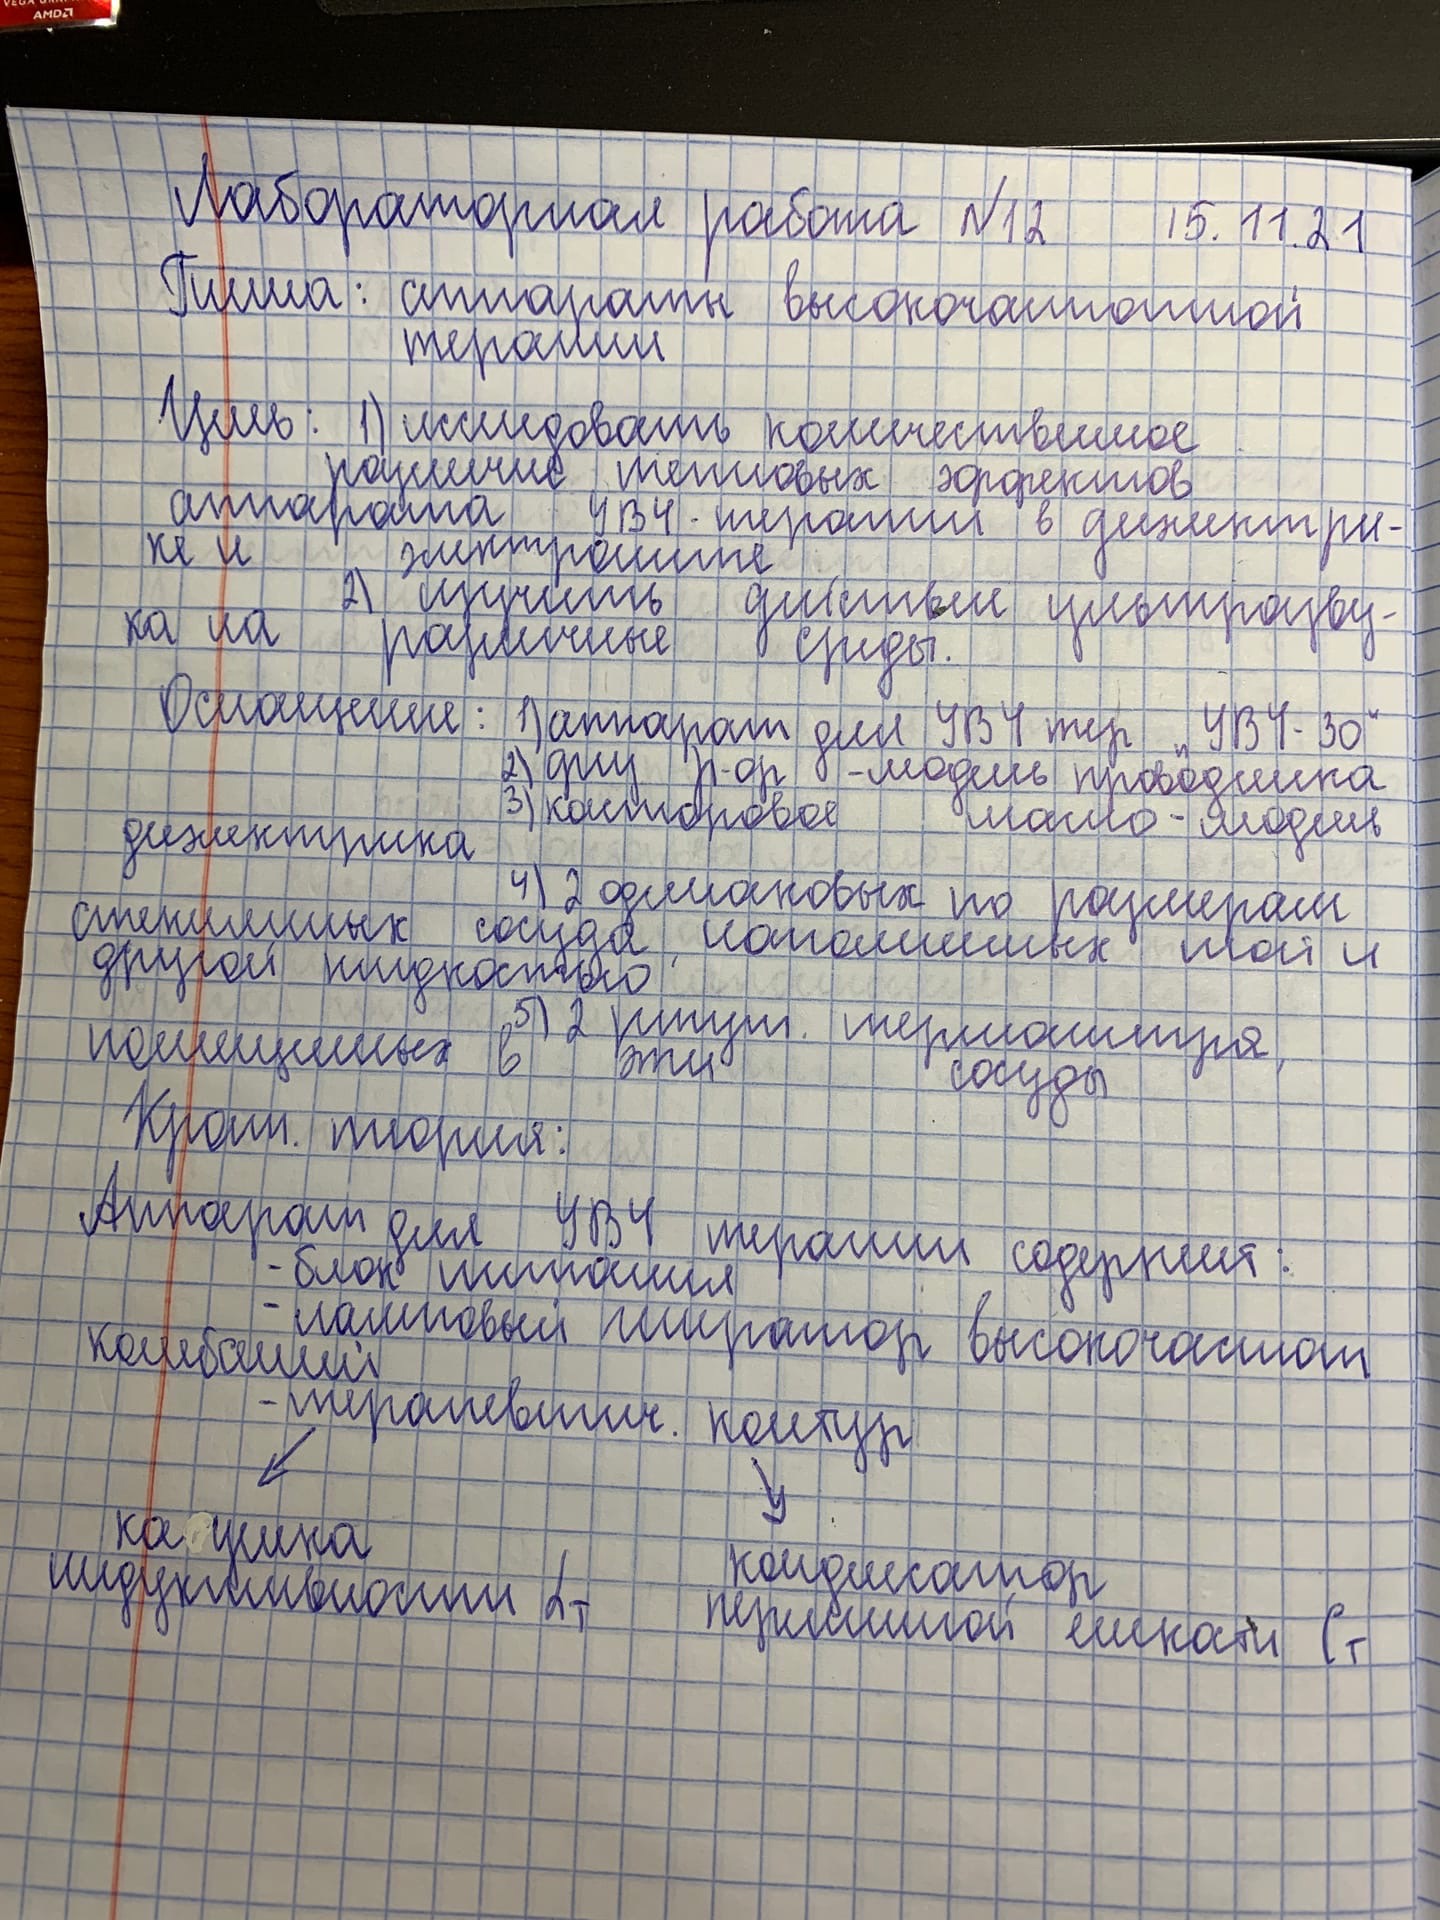 VEGA GRAPHICS
AMD
Лабораторная работа №12 15.11.21
Тема: аппараты высокочастотной
терапии
Цель: 1) исследовать количественное
различие тепловых эффектов
аппарата УВЧ-терапии в диэлектри-
ке и электролите
2) изучить действие ультразву-
ка на различные среды.
Оснащение: 1) аппарат для УВЧ тер „УВЧ-30"
2) физ р-ор - модель проводника
3) касторовое масло - модель
диэлектрика
4) 2 одинаковых по размерам
стеклянных сосуда, наполненных той и
другой жидкостью
5) 2 ртут. термометра,
помещенных в эти сосуды
Кратк. теория:
Аппарат для УВЧ терапии содержит:
- блок питания
- ламповый генератор высокочастот
колебаний
- терапевтич. контур
катушка
индуктивности Lт
конденсатор
переменной емкости Cт